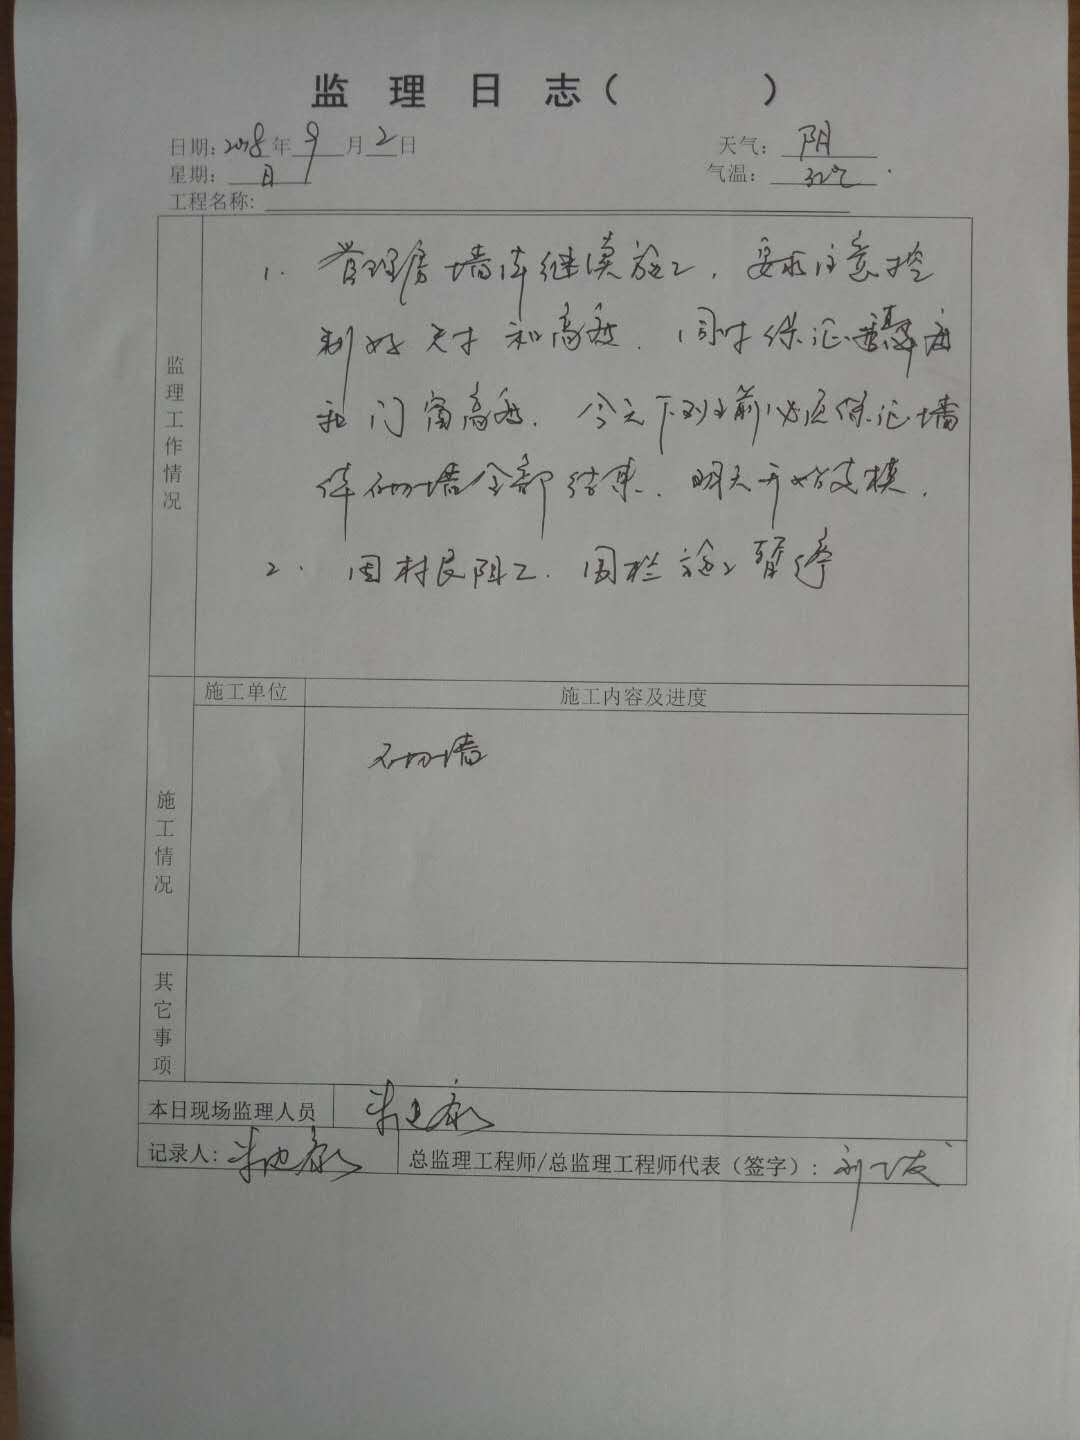 监 理 日 志（ ）
日期：2018年9月2日 天气：阴
星期：日 气温：32℃
工程名称：
监理工作情况
1. 管理房墙体继续施工，要求注意控
制好尺寸和高程．同时保证垂直度
和门窗高程．今天下班前必须保证墙
体砌墙全部结束．明天开始支模．
2. 因村民阻工．围栏施工暂停
施工单位 施工内容及进度
施工情况
砌墙
其它事项
本日现场监理人员
记录人： 总监理工程师/总监理工程师代表（签字）：